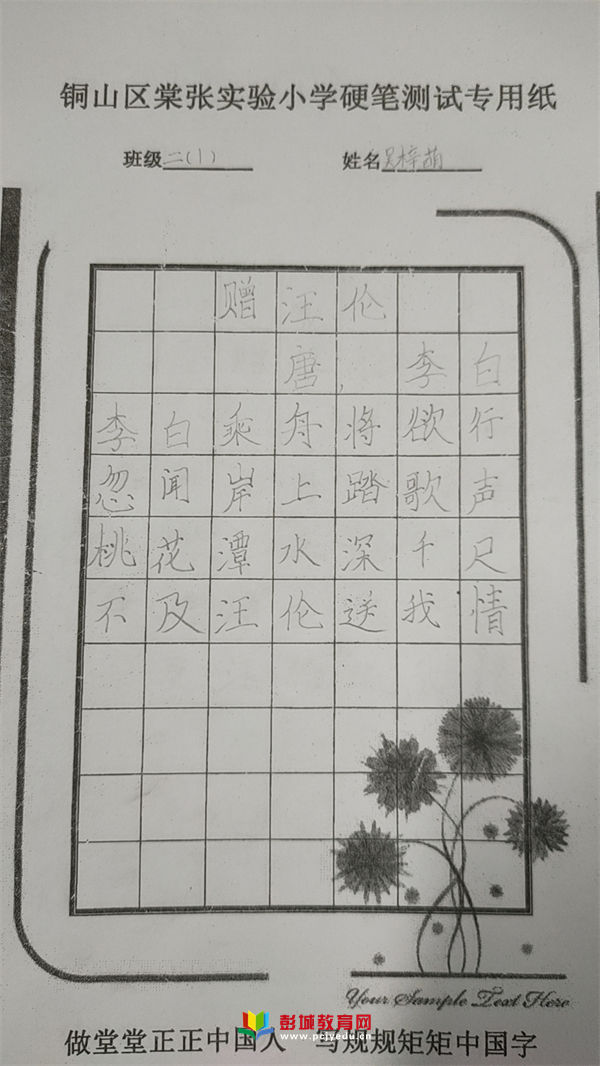 铜山区棠张实验小学硬笔测试专用纸
班级二(1) 姓名吴梓萌
赠汪伦
唐,李白
李白乘舟将欲行
忽闻岸上踏歌声
桃花潭水深千尺
不及汪伦送我情
Your Sample Text Here
彭城教育网
www.pcjyedu.cn
做堂堂正正中国人 写规规矩矩中国字